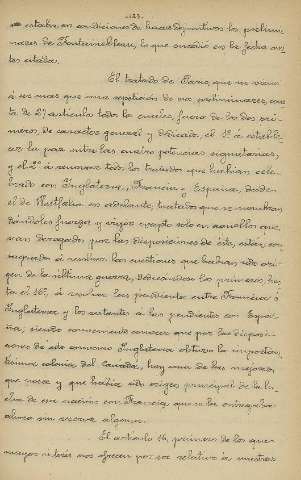 125.
estaba en condiciones de hacer definitivos los prelimi-
nares de Fontainebleau, lo que sucedió en la fecha an-
tes citada.
El tratado de Paris, que no viene
á ser mas que una repetición de sus preliminares, cons-
ta de 27 articulos todos los cuales, fuera de los dos pri-
meros, de caracter general y dedicado, el 1º á estable-
cer la paz entre las cuatro potencias signatarias,
y el 2º á renovar todos los tratados que habian cele-
brado con Inglaterra, Francia y España, desde
el de Westfalia en adelante, tratados que se renuevan,
dandoles fuerza y vigor excepto solo en aquello que
sean derogados por las disposiciones de éste, están con-
sagrados á resolver las cuestiones que habian sido ori-
gen de la última guerra, dedicandose los primeros has-
ta el 16º, á resolver los pendientes entre Francia é
Inglaterra y los restantes á los pendientes con Espa-
ña, siendo conveniente conocer que por las disposi-
ciones de este convenio Inglaterra obtuvo la importan-
tisima colonia del Canada, hoy una de las mejores
que posee y que habia sido origen principal de la lu-
cha de esa nación con Francia, que se las entregaba
ahora sin reserva alguna.
El articulo 16, primero de los que
mayor interés nos ofrecen por ser relativo á nuestras